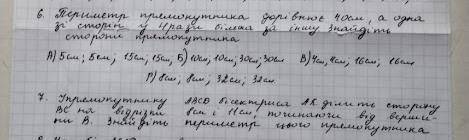 6. Периметр прямокутника дорівнює 40см, а одна
зі сторін у 4 рази більша за іншу Знайдіть
сторони прямокутника
А) 5см; 5см; 15см; 15см; Б) 10см; 10см; 30см; 30см В) 4см; 4см; 16см; 16см
Г) 8см; 8см; 32см; 32см.
7. Упрямокутнику ABCD бісектриса AK ділить сторону
BC на відрізки 8см і 11см, починаючи від верши-
ни B. Знайдіть периметр цього прямокутника